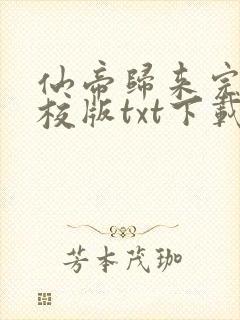 仙帝歸来完
校版txt下載
芳本茂珈